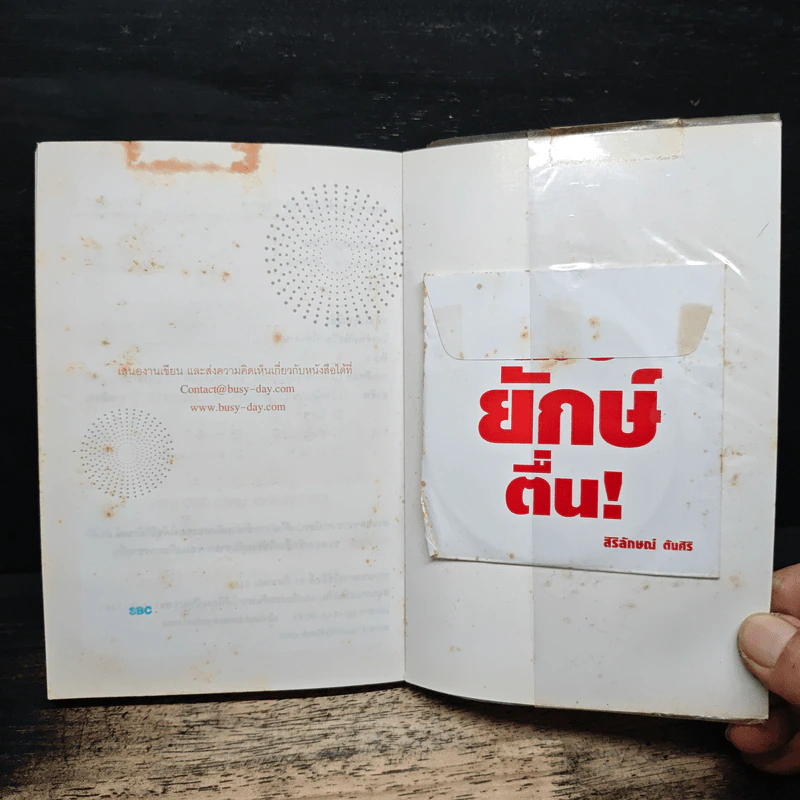 เสนองานเขียน และส่งความคิดเห็นเกี่ยวกับหนังสือได้ที่
Contact@busy-day.com
www.busy-day.com
SBC
ยักษ์
ตื่น!
สิริลักษณ์ ตันศิริ